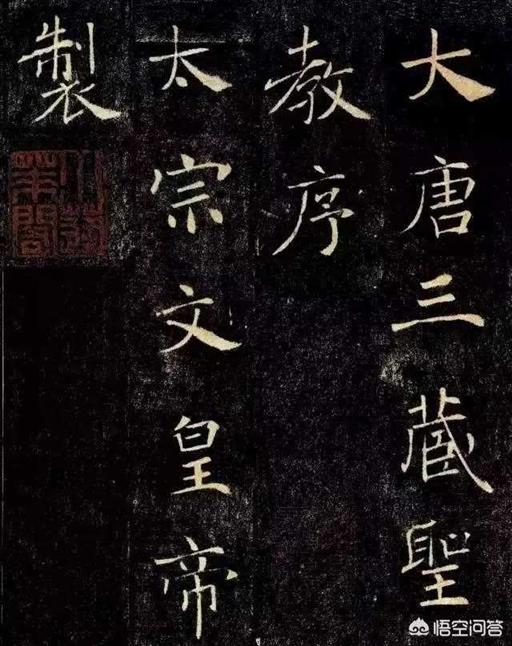 大唐三藏聖
教序
太宗文皇帝
製
悟空问答